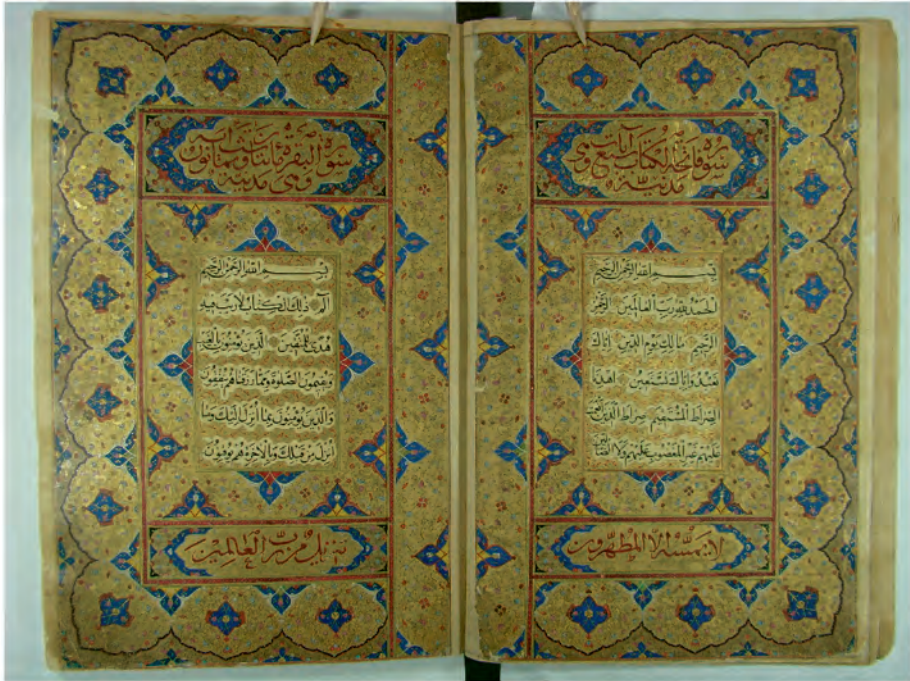 سورة فاتحة الكتاب سبع آيات وهي
مدنية
بسم الله الرحمن الرحيم
الحمد لله رب العالمين الرحمن
الرحيم مالك يوم الدين اياك
نعبد واياك نستعين اهدنا
الصراط المستقيم صراط الذين انعمت
عليهم غير المغضوب عليهم ولا الضالين
لا يمسه الا المطهرون
سورة البقرة مائتا وست وثمانون آية
وهي مدنية
بسم الله الرحمن الرحيم
الم ذلك الكتاب لا ريب فيه
هدى للمتقين الذين يؤمنون بالغيب
ويقيمون الصلوة ومما رزقناهم ينفقون
والذين يؤمنون بما انزل اليك وما
انزل من قبلك وبالاخرة هم يوقنون
تنزيل من رب العالمين